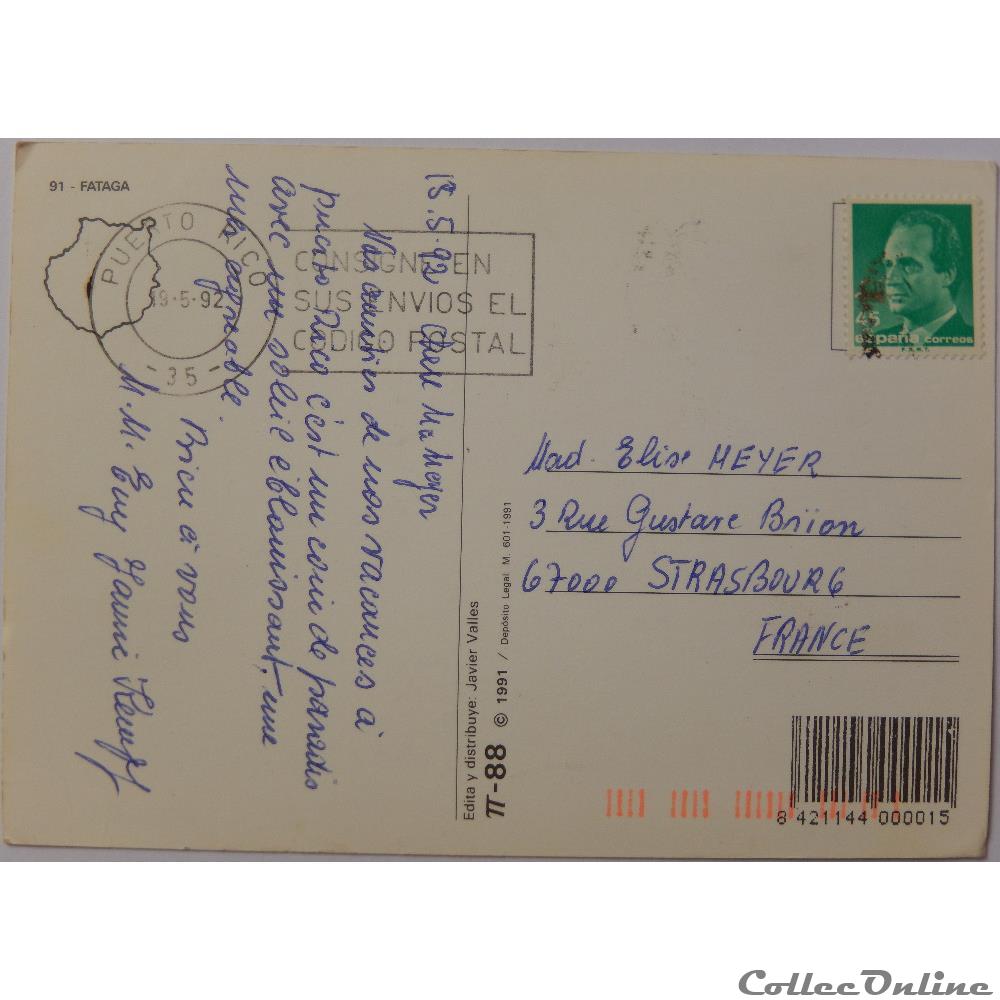 91 - FATAGA
PUERTO RICO
19-5-92
- 35 -
CONSIGNE EN
SUS ENVIOS EL
CODIGO POSTAL
45
españa correos
F.N.M.T.
18.5.92 Chère Me Meyer
Nos amitiés de nos vacances à
puerto Rico c'est un coin de paradis
avec un soleil éblouissant, une
mer agréable.
Bien à vous
M.M.
Edita y distribuye: Javier Valles
π-88 © 1991 / Depósito Legal M. 601-1991
Mad. Elise MEYER
3 Rue Gustave Brïion
67000 STRASBOURG
FRANCE
8 421144 000015
CollecOnline